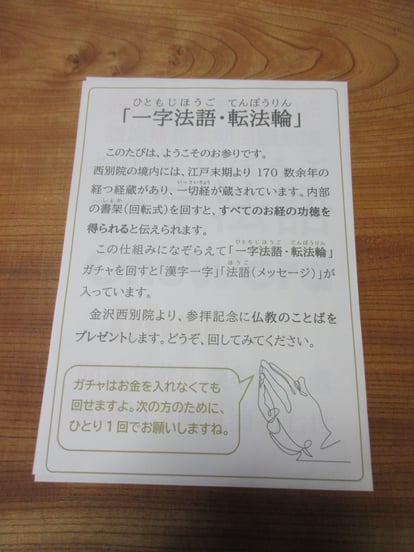 ひともじほうご てんぽうりん
「一字法語・転法輪」
このたびは、ようこそのお参りです。
西別院の境内には、江戸末期より 170 数余年の
いっさいきょう
経つ経蔵があり、一切経が蔵されています。内部
しょか
の書架(回転式)を回すと、すべてのお経の功徳を
得られると伝えられます。
ひともじほうご てんぽうりん
この仕組みになぞらえて「一字法語・転法輪」
ほうご
ガチャを回すと「漢字一字」「法語(メッセージ)」が
入っています。
金沢西別院より、参拝記念に仏教のことばを
プレゼントします。どうぞ、回してみてください。
ガチャはお金を入れなくても
回せますよ。次の方のために、
ひとり1回でお願いしますね。